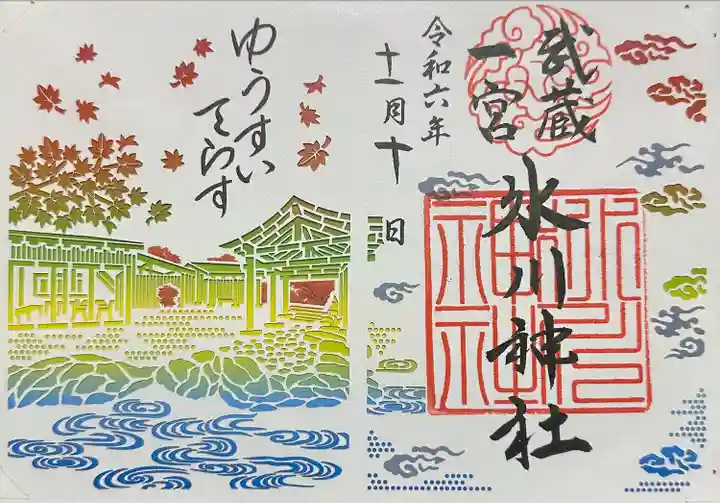 武蔵
一宮
氷川神社
令和六年
十一月十日
ゆうすい
てらす
氷川
神社